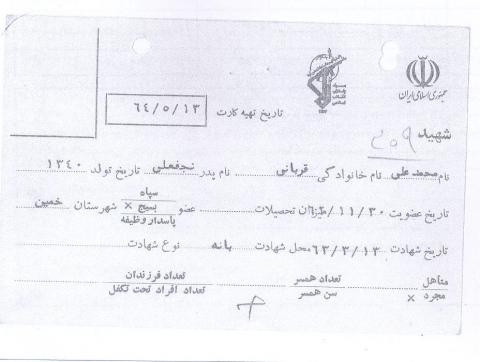 جمهوری اسلامی ایران
تاریخ تهیه کارت ۶۴/۵/۱۳
شهید ۲۰۹
نام محمد علی نام خانوادگی قربانی نام پدر نجفعلی تاریخ تولد ۱۳۴۰
تاریخ عضویت ۱۱/۳۰/ میزان تحصیلات عضو سپاه بسیج × پاسدار وظیفه شهرستان خمین
تاریخ شهادت ۶۳/۳/۱۳ محل شهادت بانه نوع شهادت
متأهل تعداد همسر تعداد فرزندان
مجرد × سن همسر تعداد افراد تحت تکفل